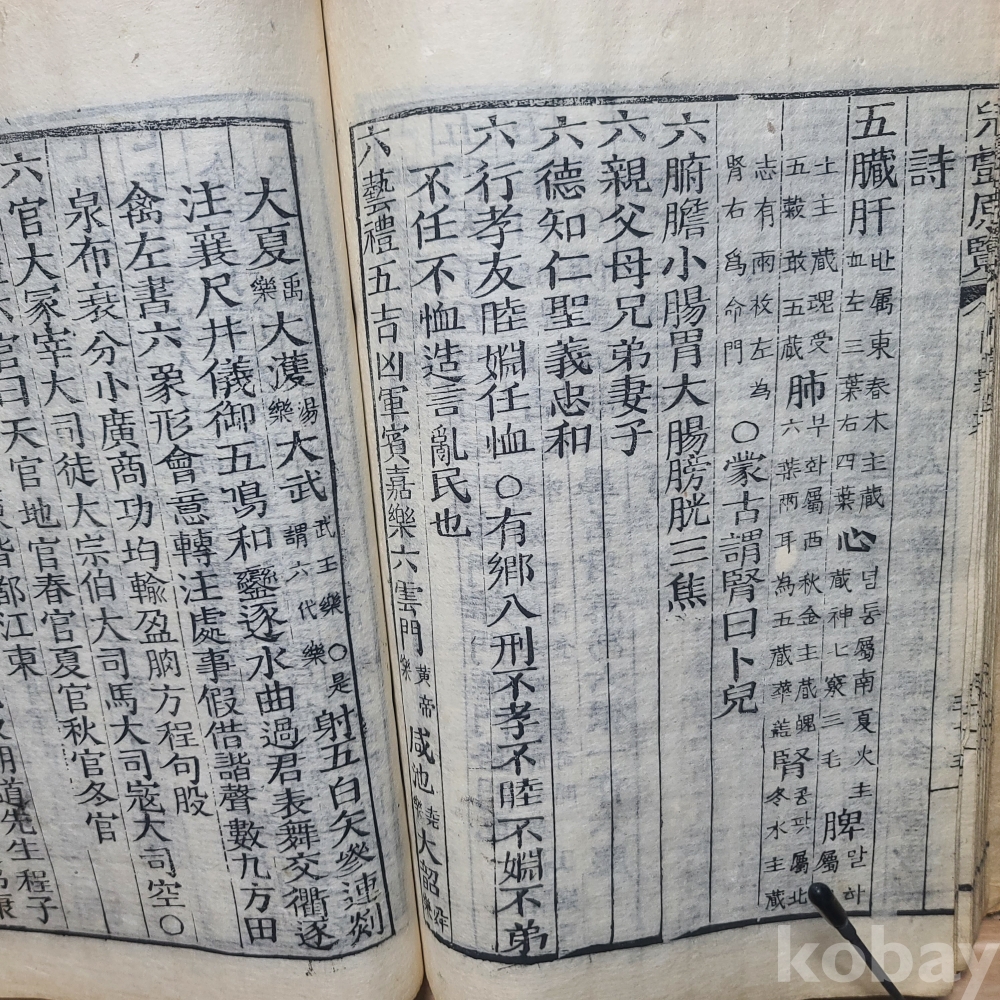 詩
五臟肝屬東春木主蔵血左三葉右四葉心념통屬南夏火主蔵神七竅三毛脾말하屬
土主蔵魂受五穀敢五蔵肺부화屬西秋金主蔵魄六葉兩耳為五蔵華盖腎콩팟屬北冬水主蔵
志有兩枚左為腎右為命門○蒙古謂腎曰卜兒
六腑膽小腸胃大腸膀胱三焦
六親父母兄弟妻子
六德知仁聖義忠和
六行孝友睦婣任恤○有鄉八刑不孝不睦不婣不弟
不任不恤造言亂民也
六藝禮五吉凶軍賓嘉樂六雲門黃帝樂咸池堯樂大韶舜樂
大夏禹樂大濩湯樂大武武王樂謂六代樂○是射五白矢參連剡
注襄尺井儀御五鳴和鸞逐水曲過君表舞交衢逐
禽左書六象形會意轉注處事假借諧聲數九方田
泉布衰分小廣商功均輸盈朒方程句股
六官大冢宰大司徒大宗伯大司馬大司寇大司空○
六官曰天官地官春官夏官秋官冬官
皆都江東
明道先生程子
kobay